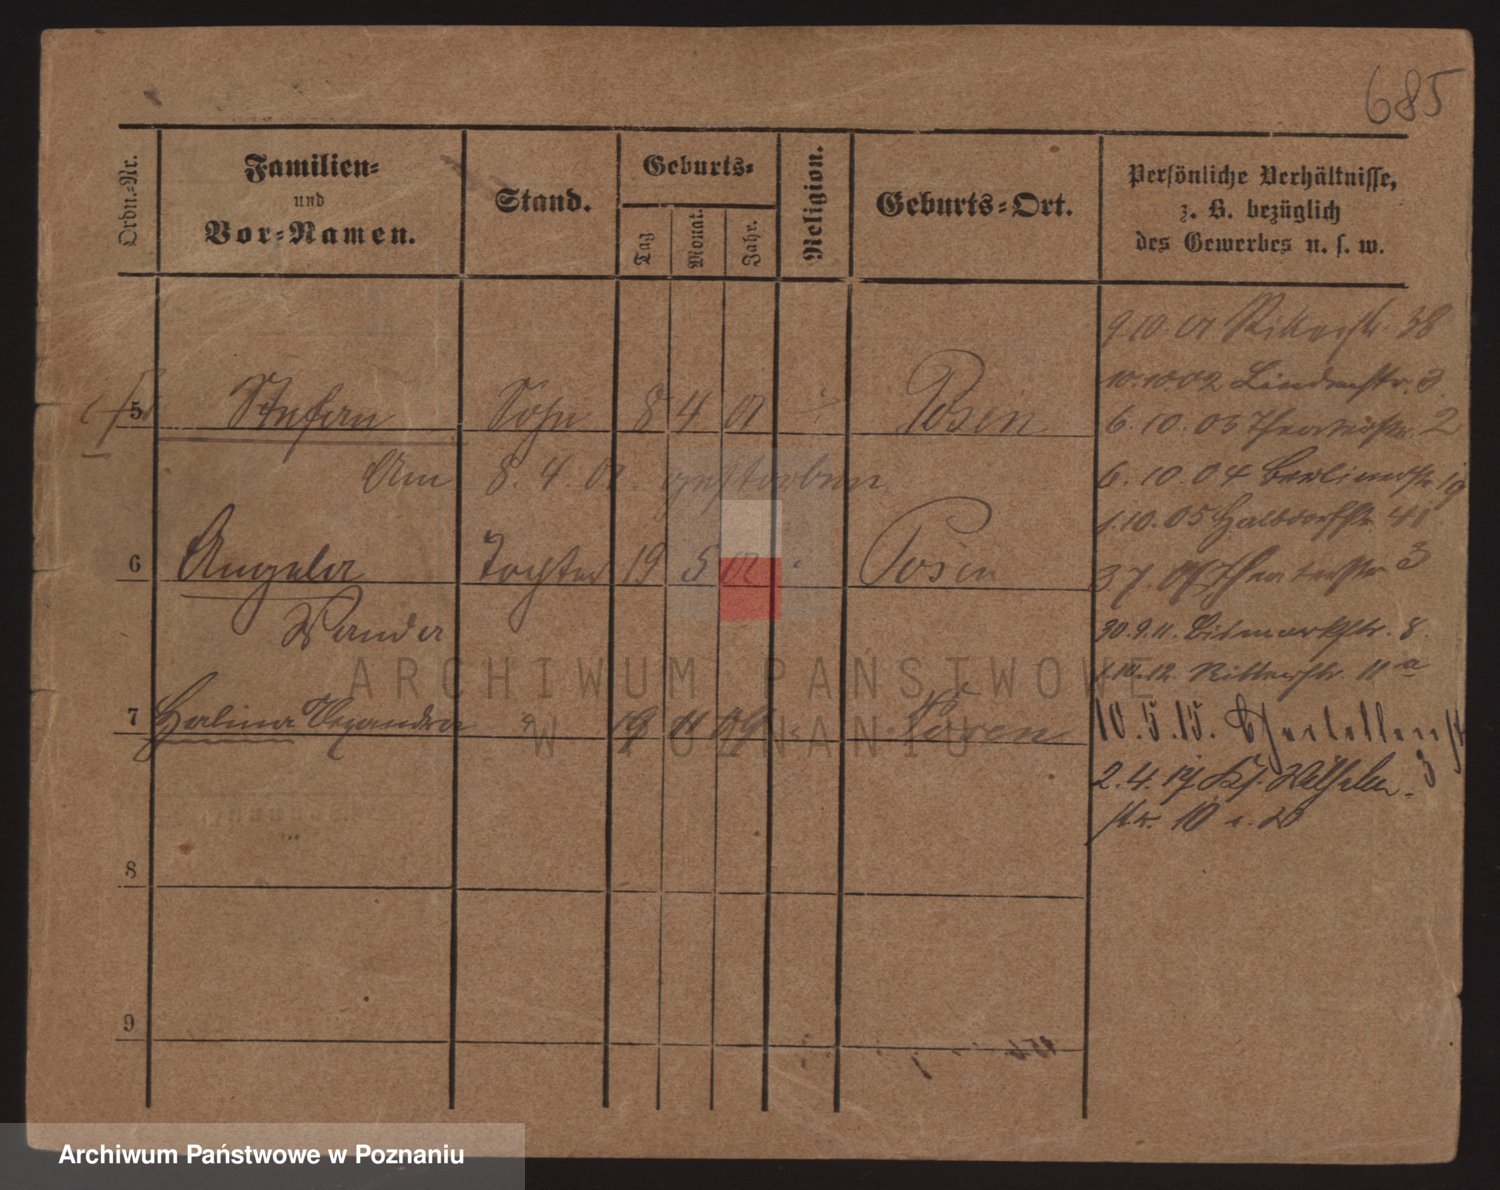 685
Ordn.-Nr.
Familien-
und
Vor-Namen.
Stand.
Geburts-
Tag
Monat.
Jahr.
Religion.
Geburts-Ort.
Persönliche Verhältnisse,
z. B. bezüglich
des Gewerbes u. s. w.
9.10.01 Ritterstr. 38
10.10.02 Lindenstr. 3
5 Stefan Sohn 8 4 01 Posen
6.10.03 Theaterstr. 2
Am 8.4.01. gestorben
6.10.04 Berlinerstr. 19
1.10.05 Halbdorfstr. 41
6 Angela Tochter 19 5 02 Posen
3 7. 07 Theaterstr. 3
Wanda
30.9.11. Bismarckstr. 8.
1.10.12. Ritterstr. 11a
7 Halina 19 11 09 Posen
10.5.15.
3
2.4.17
str. 10
8
9
ARCHIWUM PAŃSTWOWE
W POZNANIU
Archiwum Państwowe w Poznaniu